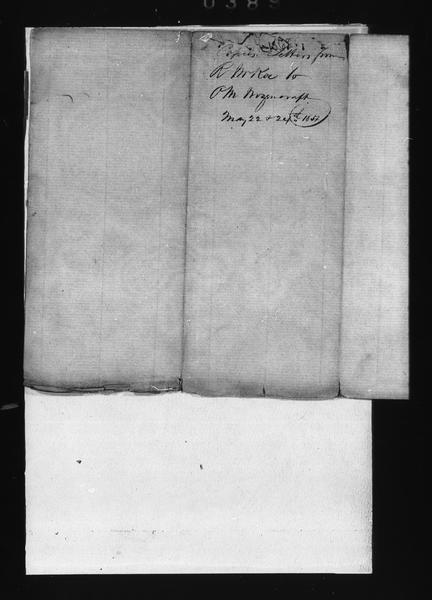 0389
Copies Letters from
R McKee to
O M Wozencraft
May 22 & 24th 1851